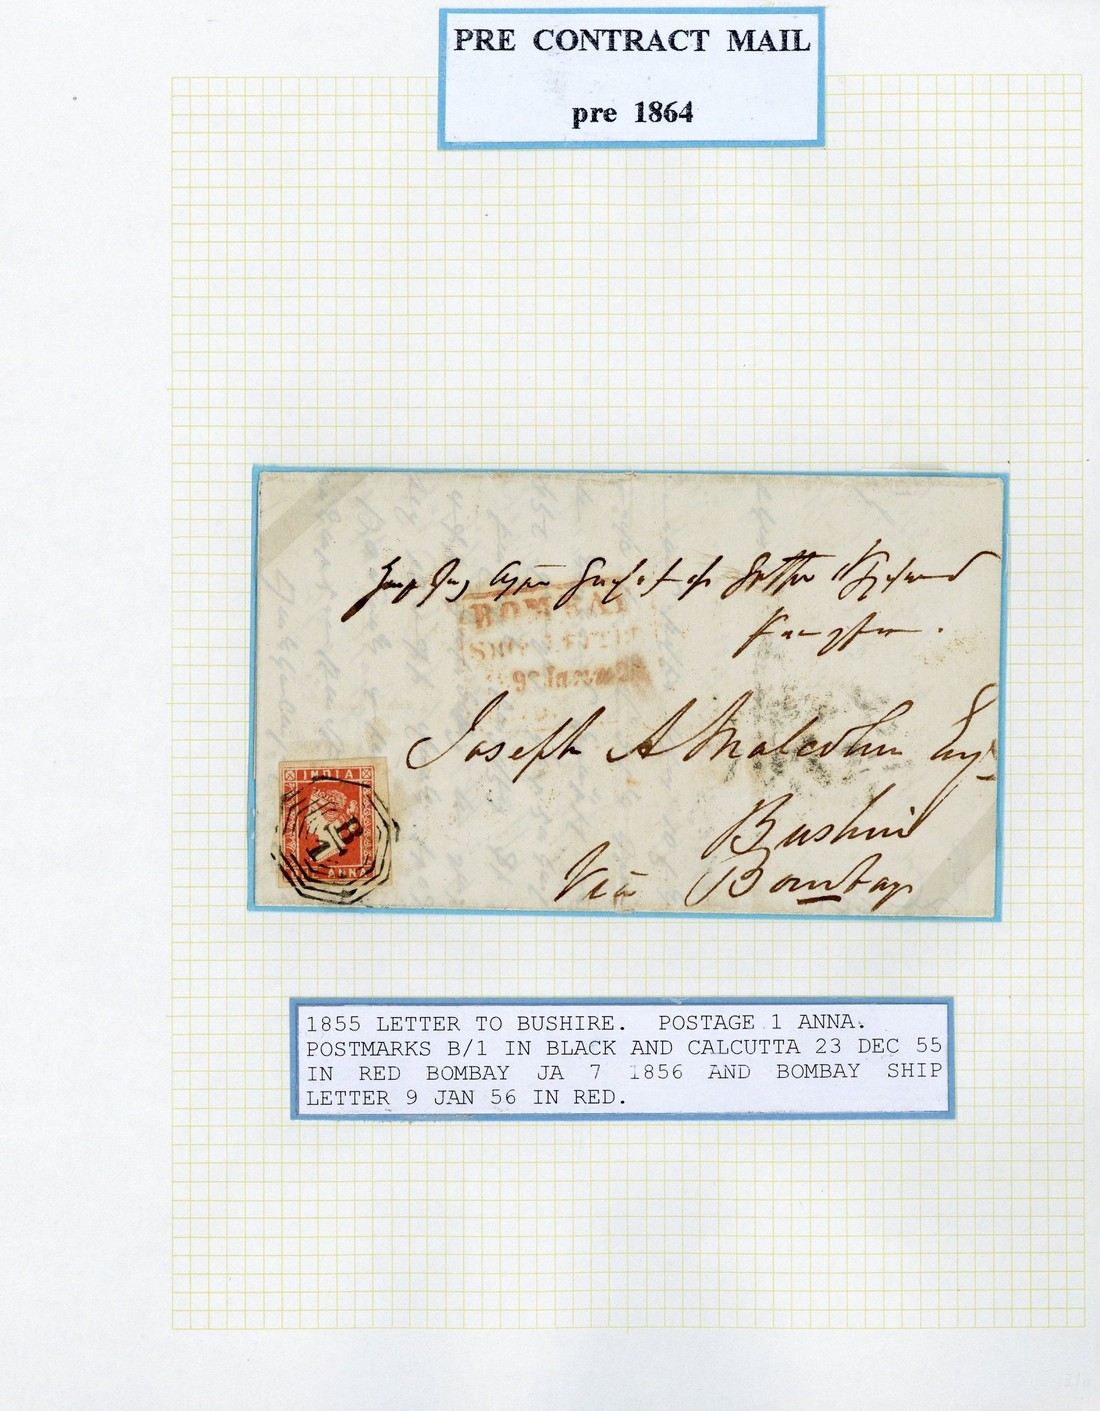 PRE CONTRACT MAIL
pre 1864
BOMBAY
SHIP LETTER
Joseph A Malcolm Esq
Bushire
Via Bombay
INDIA
B
1
ANNA
1855 LETTER TO BUSHIRE. POSTAGE 1 ANNA.
POSTMARKS B/1 IN BLACK AND CALCUTTA 23 DEC 55
IN RED BOMBAY JA 7 1856 AND BOMBAY SHIP
LETTER 9 JAN 56 IN RED.